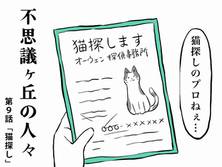 猫探しのプロねぇ…
猫探します
オーウェン探偵事務所
不思議ヶ丘の人々
第9話「猫探し」